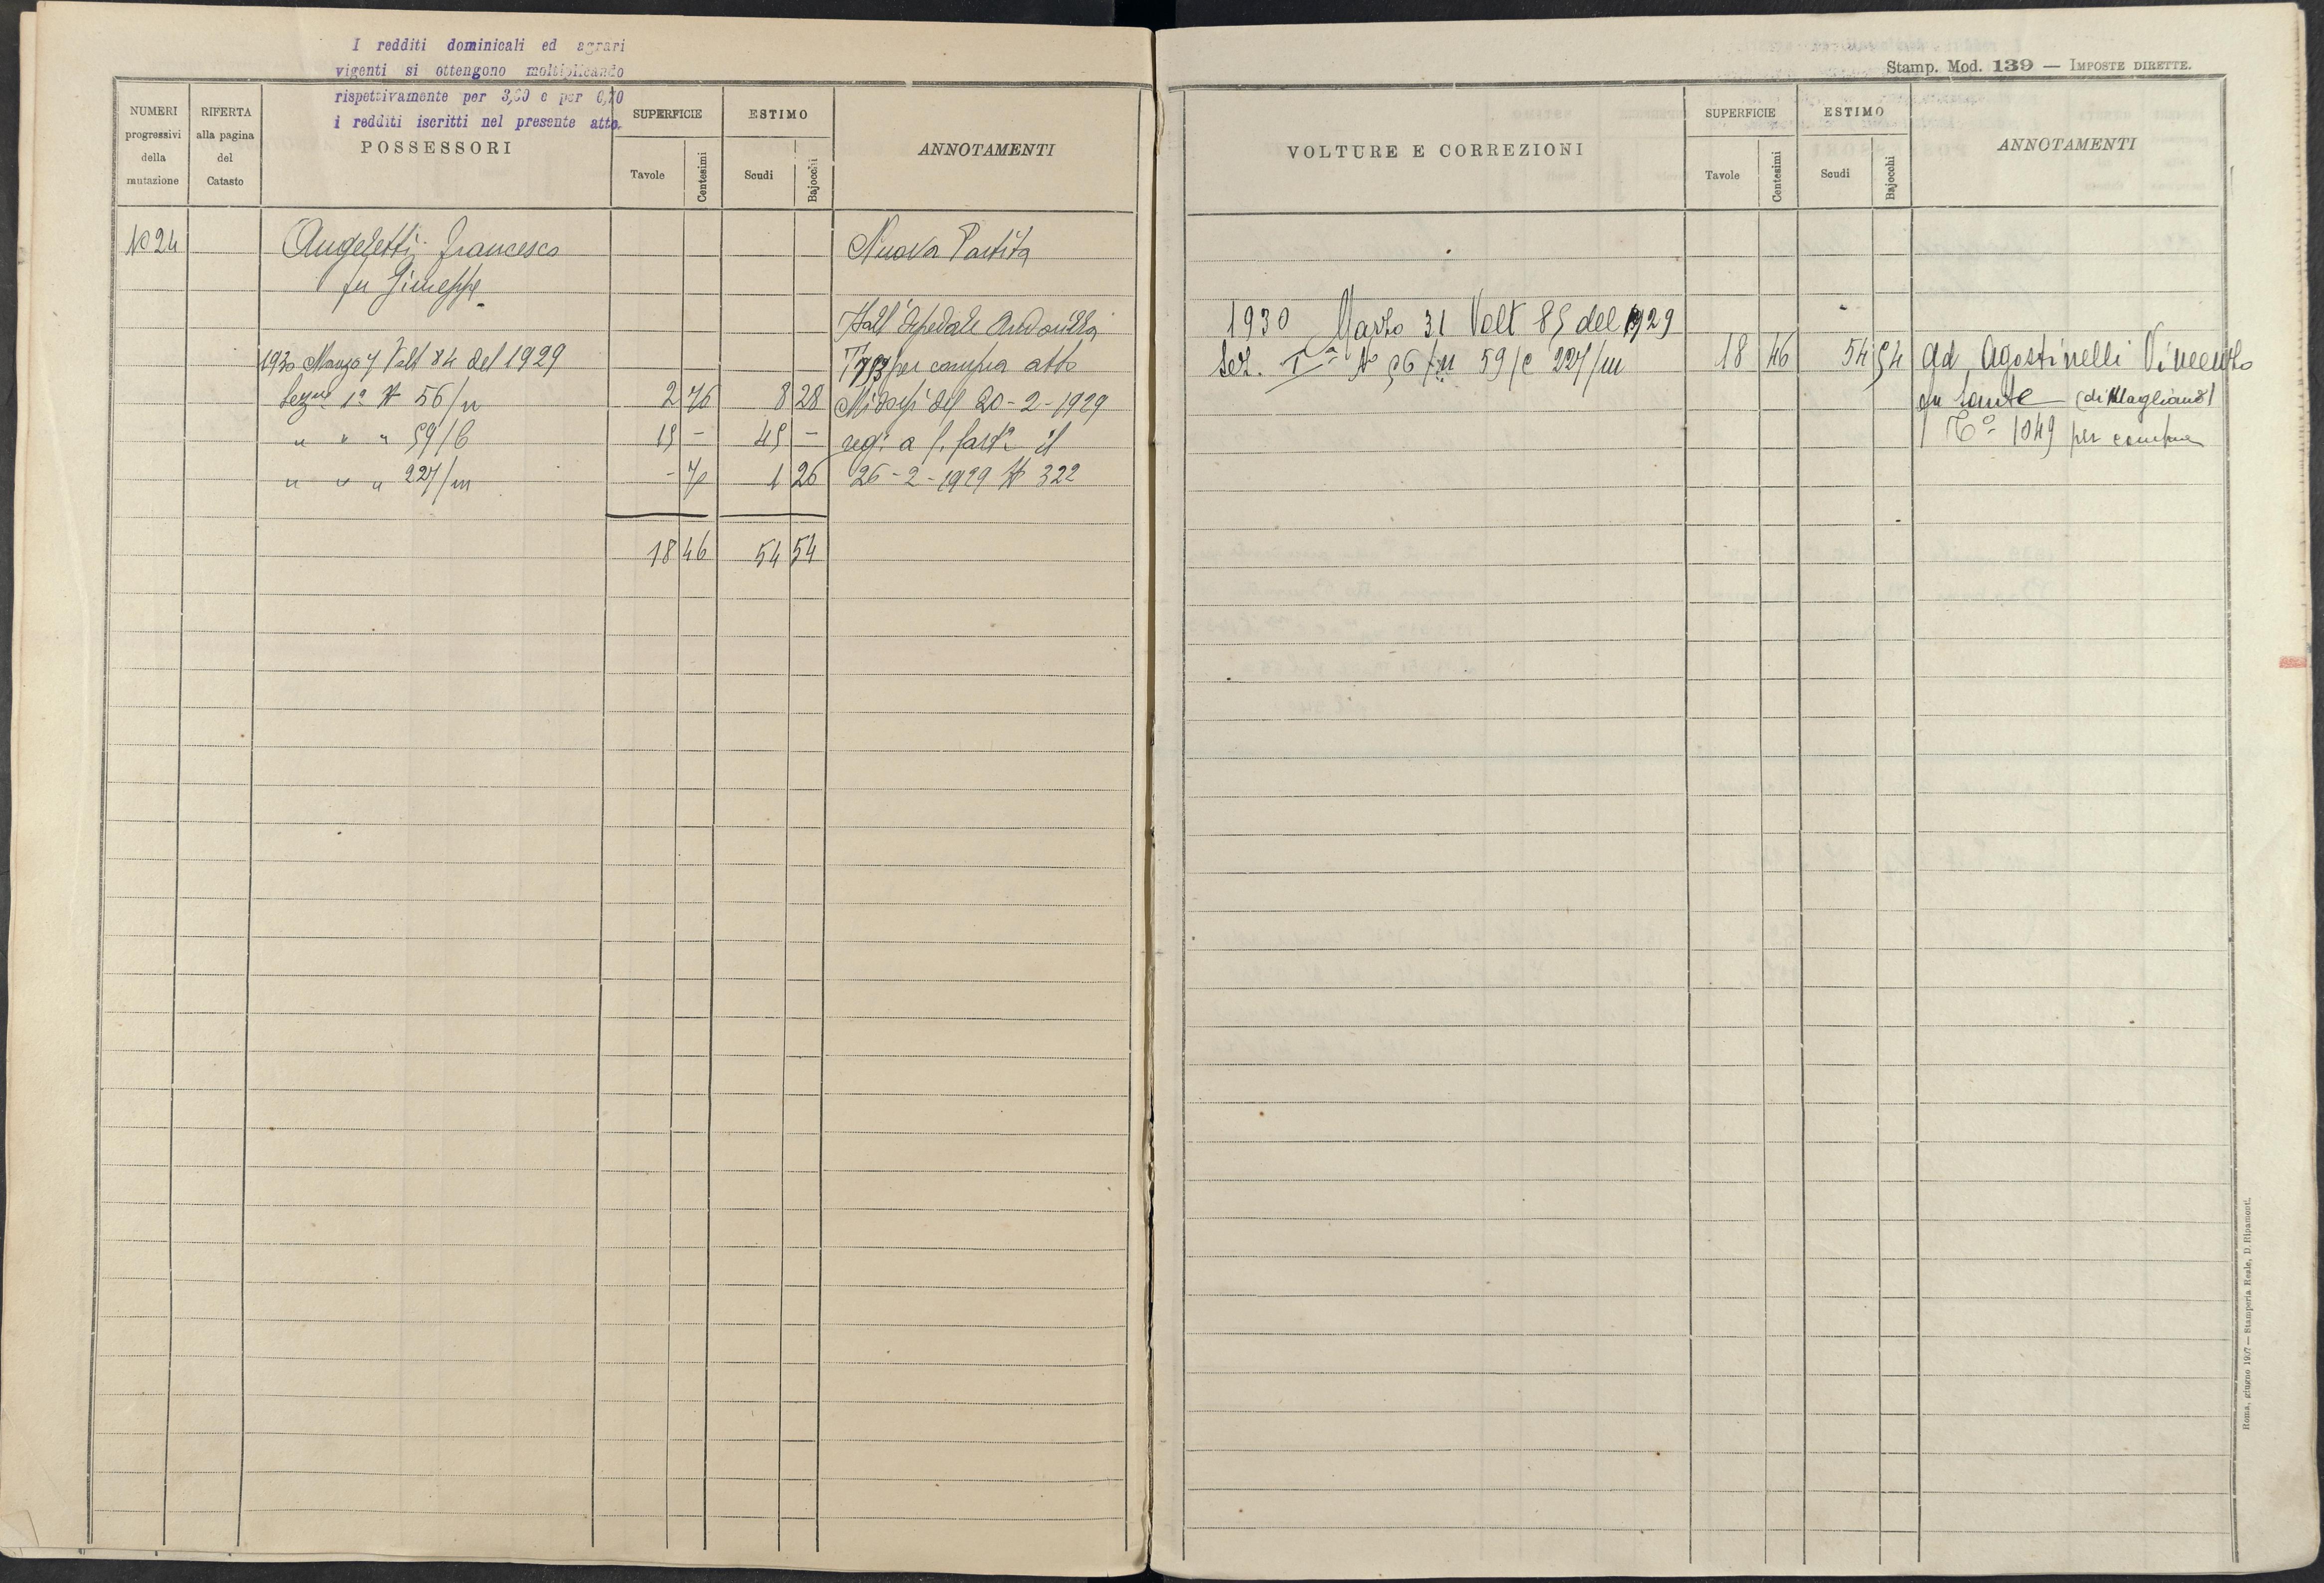 I redditi dominicali ed agrari
vigenti si ottengono moltiplicando
rispettivamente per 3,60 e per 0,70
i redditi iscritti nel presente atto.
NUMERI
progressivi
della
mutazione
RIFERTA
alla pagina
del
Catasto
POSSESSORI
SUPERFICIE
Tavole
Centesimi
ESTIMO
Scudi
Bajocchi
ANNOTAMENTI
1024
Angeletti Francesco
fu Giuseppe
Nuova Partita
Dall'Ospedale
1930 Marzo 7 Volt 84 del 1929
per compra atto
Sezne 1a N 56/n 2 76 8 28
del 20-2-1929
" " " 59/6 15 - 45 -
reg. a il
" " " 227/m - 70 1 26
26-2-1929 N 322
18 46 54 54
Stamp. Mod. 139 — IMPOSTE DIRETTE.
VOLTURE E CORREZIONI
SUPERFICIE
Tavole
Centesimi
ESTIMO
Scudi
Bajocchi
ANNOTAMENTI
1930 Marzo 31 Volt 85 del 1929
Sez. Ia N 56/n 59/c 227/m 18 46 54 54 ad Agostinelli Vincenzo
fu Sante (di Magliano)
Ta 1049 per compra
Roma, giugno 1907 — Stamperia Reale, D. Ripamonti.